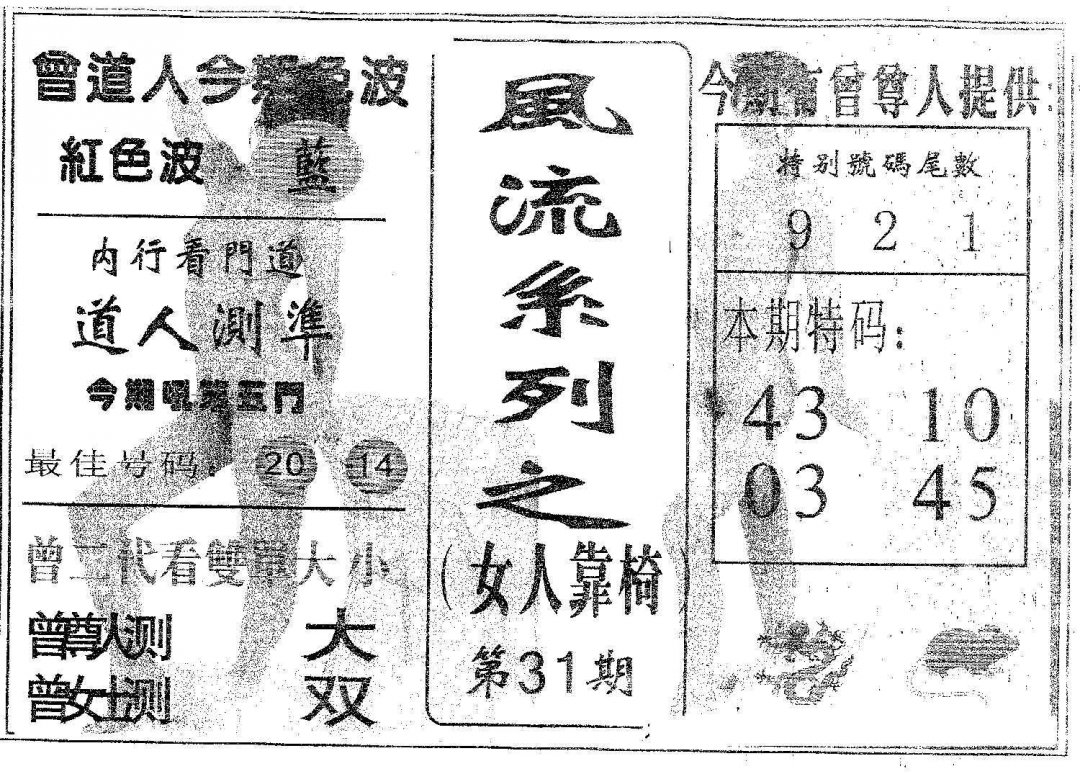 曾道人今期色波
紅色波 藍
内行看門道
道人測準
今期 五門
最佳号码： 20 14
曾二代看雙單大小
曾尊人测 大
曾女士测 双
風流系列之
（女人靠椅）
第31期
今期有曾尊人提供：
特别號碼尾數
9 2 1
本期特码：
43 10
03 45